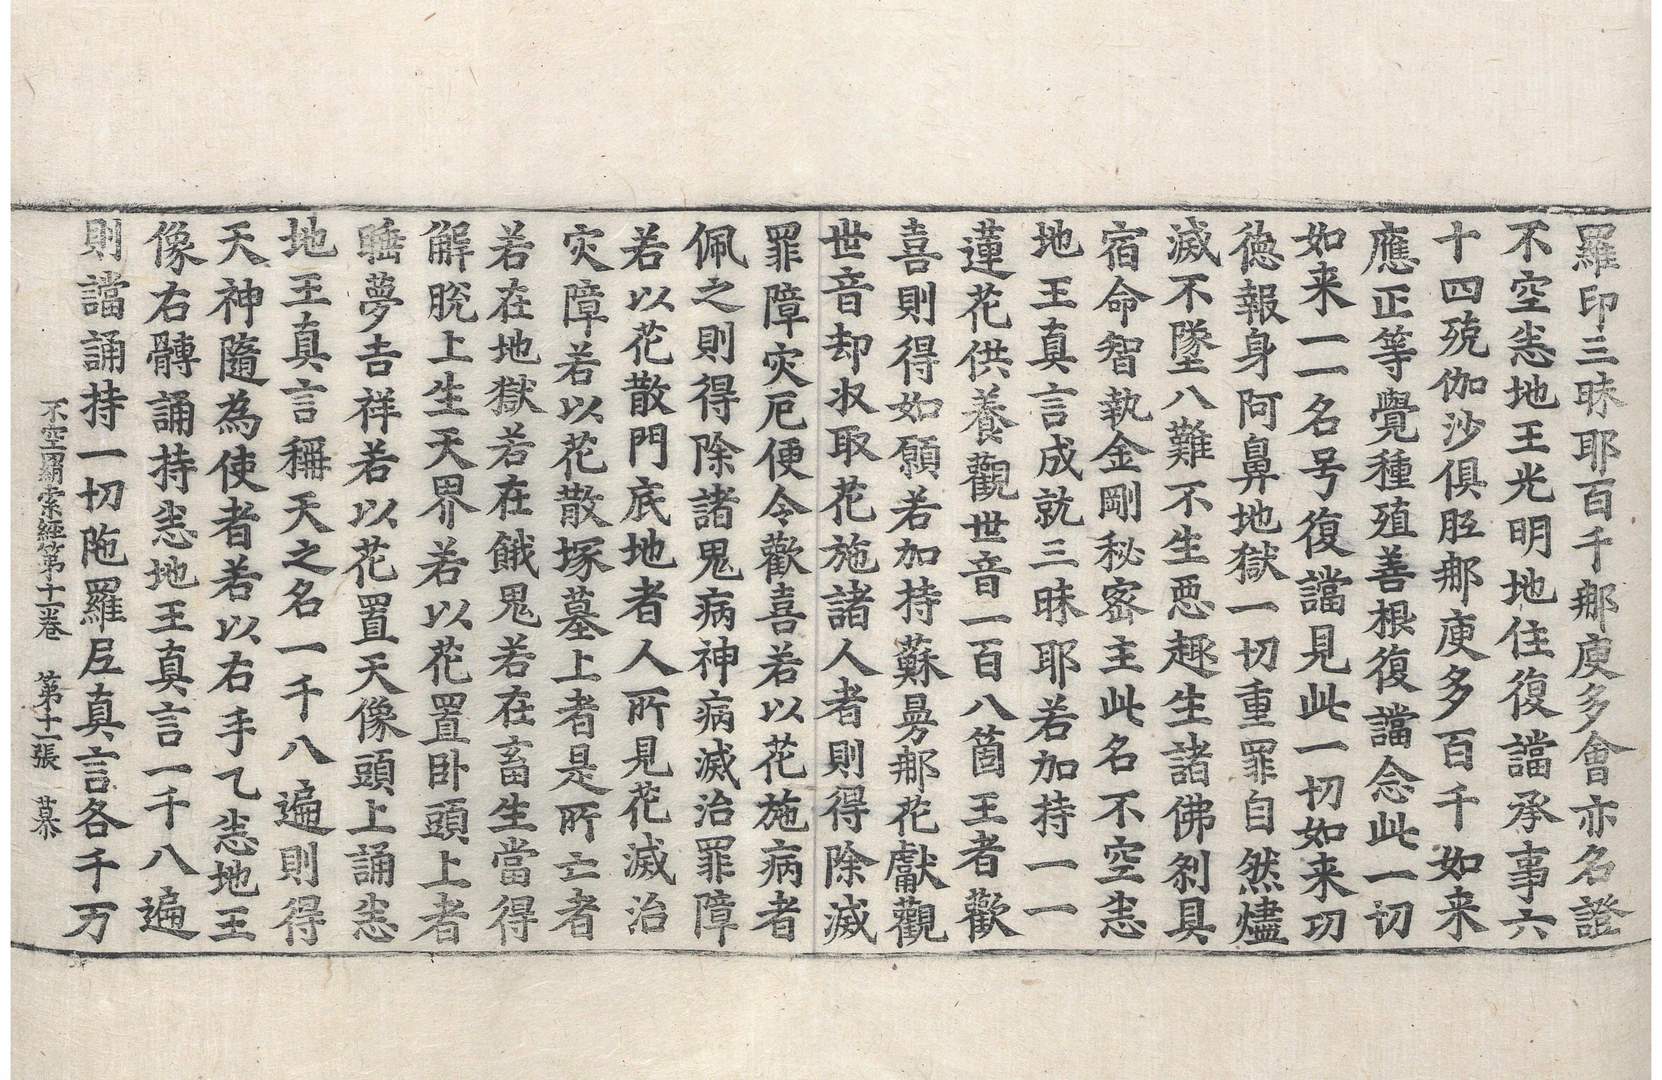 羅印三昧耶百千那庾多會亦名證
不空恚地王光明地住復證承事六
十四殑伽沙俱胝那庾多百千如来
應正等覺種殖善根復證念此一切
如来一一名号復證見此一切如来功
德報身阿鼻地獄一切重罪自然燼
滅不墜八難不生惡趣生諸佛剎具
宿命智執金剛秘密主此名不空恚
地王真言成就三昧耶若加持一一
蓮花供養觀世音一百八箇王者歡
喜則得如願若加持蘇曼那花獻觀
世音却收取花施諸人者則得除滅
罪障灾厄便令歡喜若以花施病者
佩之則得除諸鬼病神病滅治罪障
若以花散門底地者人所見花滅治
灾障若以花散塚墓上者是所亡者
若在地獄若在餓鬼若在畜生當得
解脫上生天界若以花置卧頭上者
睡夢吉祥若以花置天像頭上誦恚
地王真言稱天之名一千八遍則得
天神隨為使者若以右手乙恚地王
像右髆誦持恚地王真言一千八遍
則證誦持一切陁羅尼真言各千万
不空羂索經第十一卷　第十一張　慕